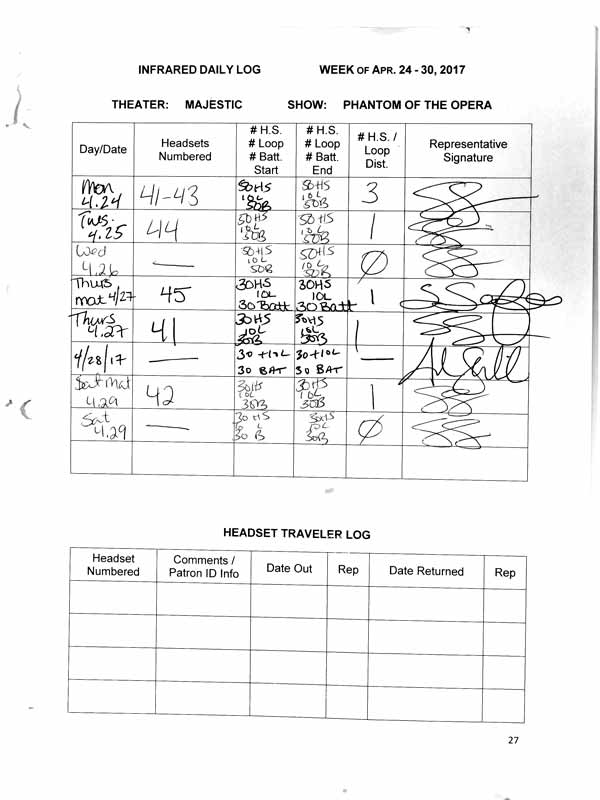 INFRARED DAILY LOG WEEK OF APR. 24 - 30, 2017
THEATER: MAJESTIC SHOW: PHANTOM OF THE OPERA
Day/Date Headsets Numbered # H.S. # Loop # Batt. Start # H.S. # Loop # Batt. End # H.S. / Loop Dist. Representative Signature
Mon 4.24 41-43 50HS 10L 50B 50HS 10L 50B 3
Tues. 4.25 44 50HS 10L 50B 50HS 10L 50B 1
Wed 4.26 — 50HS 10L 50B 50HS 10L 50B Ø
Thurs mat 4/27 45 30HS 10L 30 Batt 30HS 10L 30 Batt 1
Thurs 4.27 41 30HS 10L 30B 30HS 10L 30B 1
4/28/17 — 30+10L 30 BAT 30+10L 30 BAT —
Sat Mat 4.29 42 30HS 10L 30B 30HS 10L 30B 1
Sat 4.29 — 30HS 10L 30B 30HS 10L 30B Ø
HEADSET TRAVELER LOG
Headset Numbered Comments / Patron ID Info Date Out Rep Date Returned Rep
27